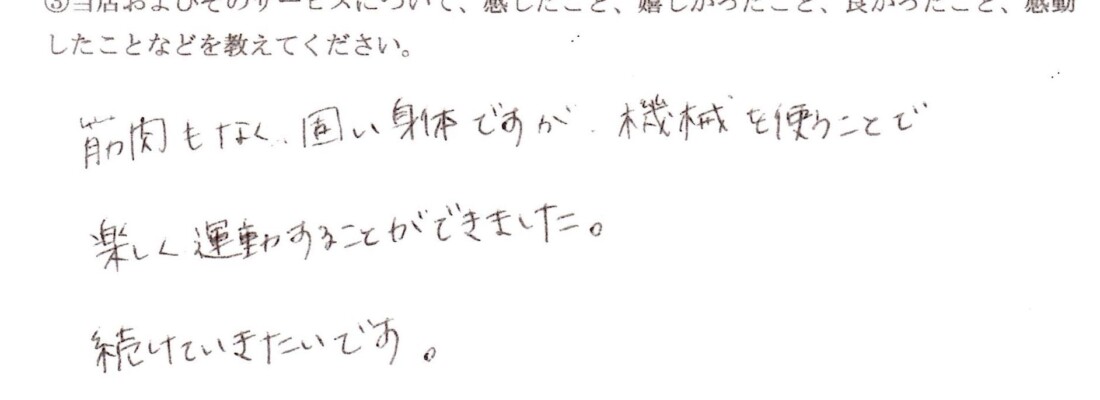 ③当店およびそのサービスについて、感じたこと、嬉しかったこと、良かったこと、感動
したことなどを教えてください。
筋肉もなく、固い身体ですが、機械を使うことで
楽しく運動することができました。
続けていきたいです。